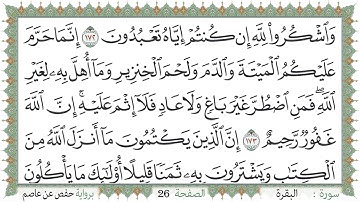 وَاشْكُرُوا لِلَّهِ إِن كُنتُمْ إِيَّاهُ تَعْبُدُونَ ١٧٢ إِنَّمَا حَرَّمَ
عَلَيْكُمُ الْمَيْتَةَ وَالدَّمَ وَلَحْمَ الْخِنزِيرِ وَمَا أُهِلَّ بِهِ لِغَيْرِ
اللَّهِ فَمَنِ اضْطُرَّ غَيْرَ بَاغٍ وَلَا عَادٍ فَلَا إِثْمَ عَلَيْهِ إِنَّ اللَّهَ
غَفُورٌ رَّحِيمٌ ١٧٣ إِنَّ الَّذِينَ يَكْتُمُونَ مَا أَنزَلَ اللَّهُ مِنَ
الْكِتَابِ وَيَشْتَرُونَ بِهِ ثَمَنًا قَلِيلًا أُولَٰئِكَ مَا يَأْكُلُونَ
سورة : البقرة الصفحة 26 برواية حفص عن عاصم